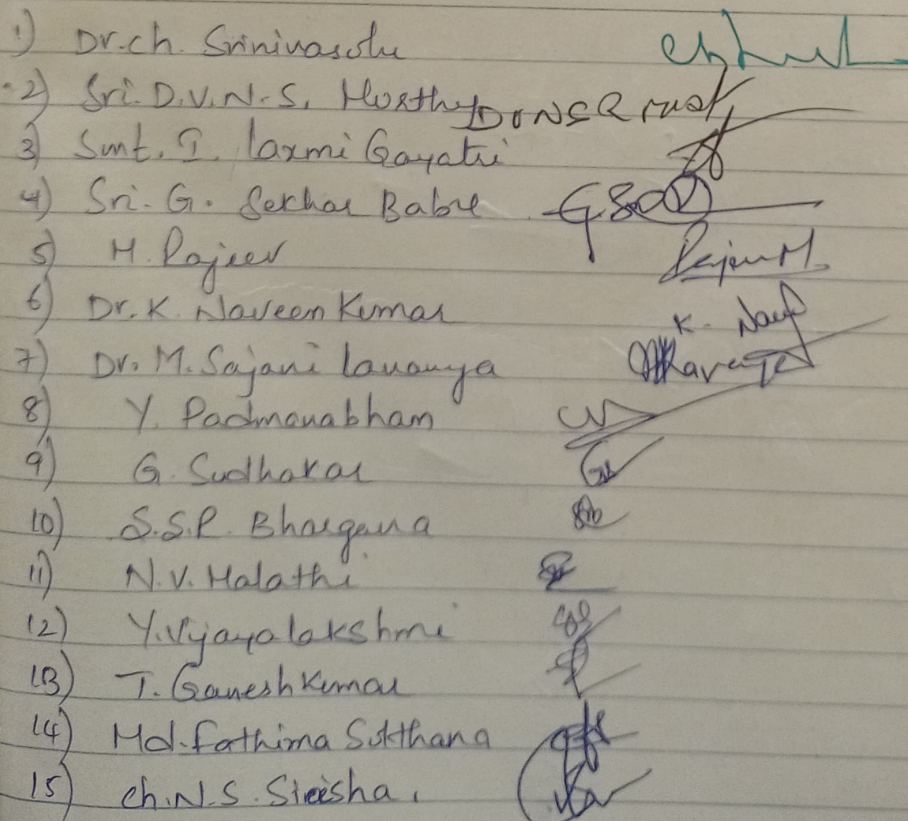 1) Dr.ch. Srinivasulu
2) Sri. D.V.N.S. Murthy
3) Smt. I. laxmi Gayatri
4) Sri. G. Sekhar Babu
5) M. Rajeev Rajeev M.
6) Dr. K. Naveen Kumar K. Nav
7) Dr. M. Sajani lavanya
8) Y. Padmanabham
9) G. Sudhakar
10) S.S.R. Bhargava
11) N.V. Malathi
12) Y.Vijayalakshmi
13) T. Ganesh Kumar
14) Md. Fathima Sulthana
15) ch.N.S. Sireesha.